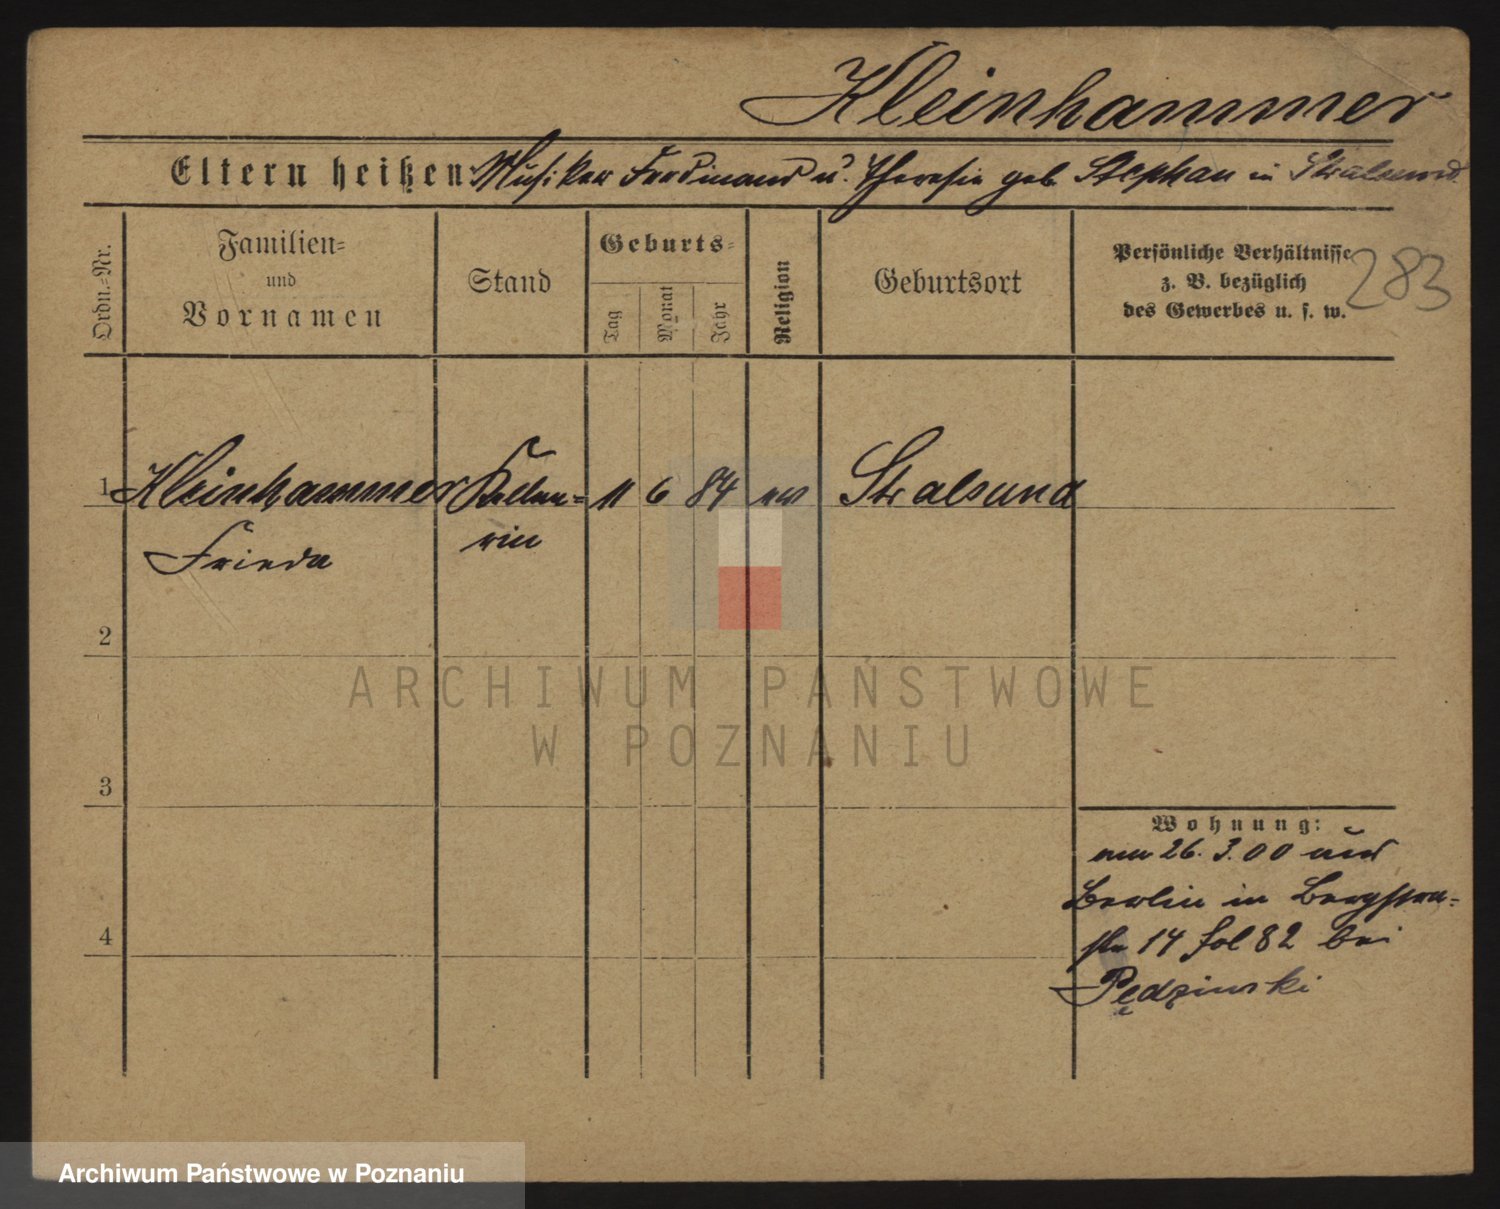 Kleinhammer
Eltern heißen: Musiker Ferdinand u. Theresie geb. Stephan in Stralsund
Ordn.-Nr.
Familien-
und
Vornamen
Stand
Geburts-
Tag
Monat
Jahr
Religion
Geburtsort
Persönliche Verhältnisse
z. B. bezüglich
des Gewerbes u. s. w.
283
1 Kleinhammer Kellne- 11 6 84 ev Stralsund
Frieda rin
2
3
4
Wohnung:
am 26.3.00 aus
Berlin in Bergstra-
ße 14 fol 82 bei
Pędzinski
ARCHIWUM PAŃSTWOWE
W POZNANIU
Archiwum Państwowe w Poznaniu